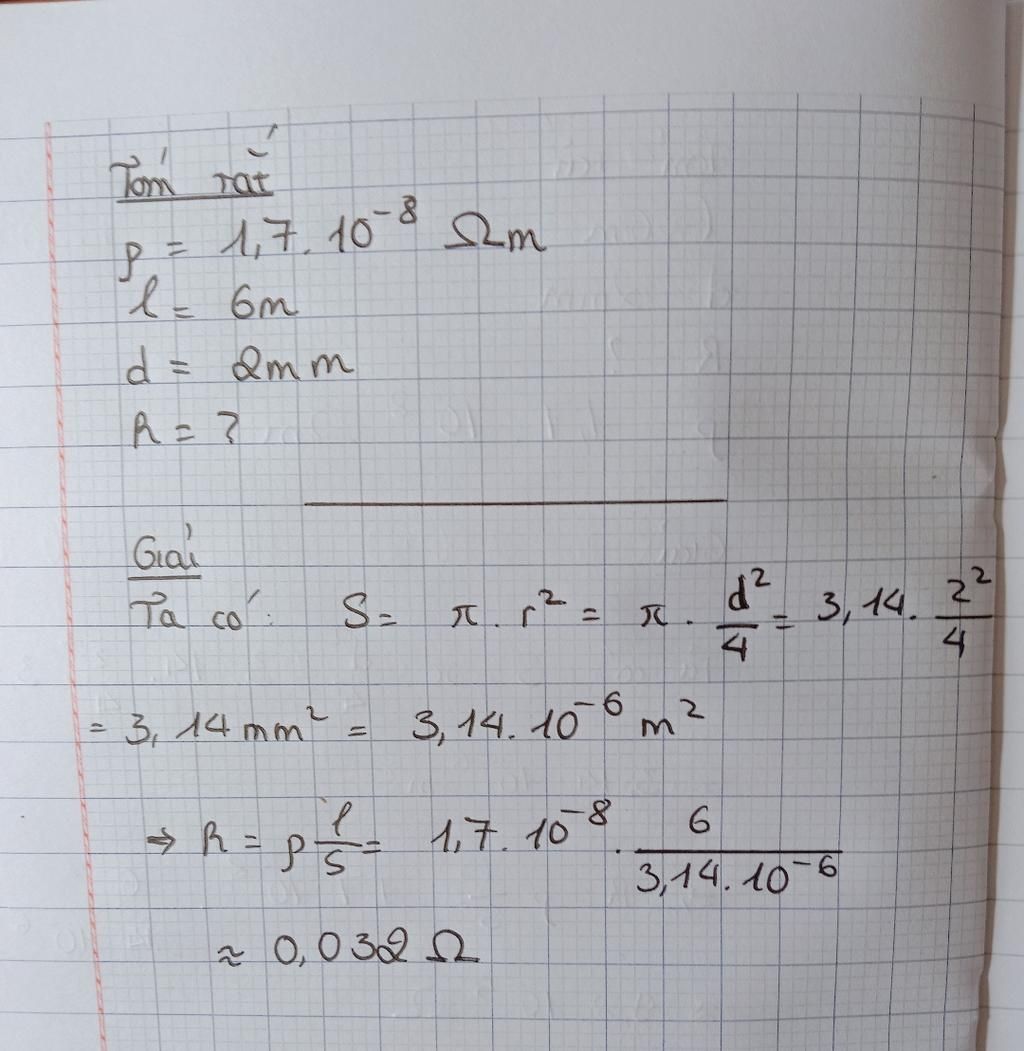 Tóm rắt
ρ = 1,7. 10⁻⁸ Ωm
l = 6m
d = 2mm
R = ?
Giải
Ta có: S = π . r² = π . d²/4 = 3,14. 2²/4
= 3,14 mm² = 3,14. 10⁻⁶ m²
⇒ R = ρ l/S = 1,7. 10⁻⁸ . 6/3,14. 10⁻⁶
≈ 0,032 Ω